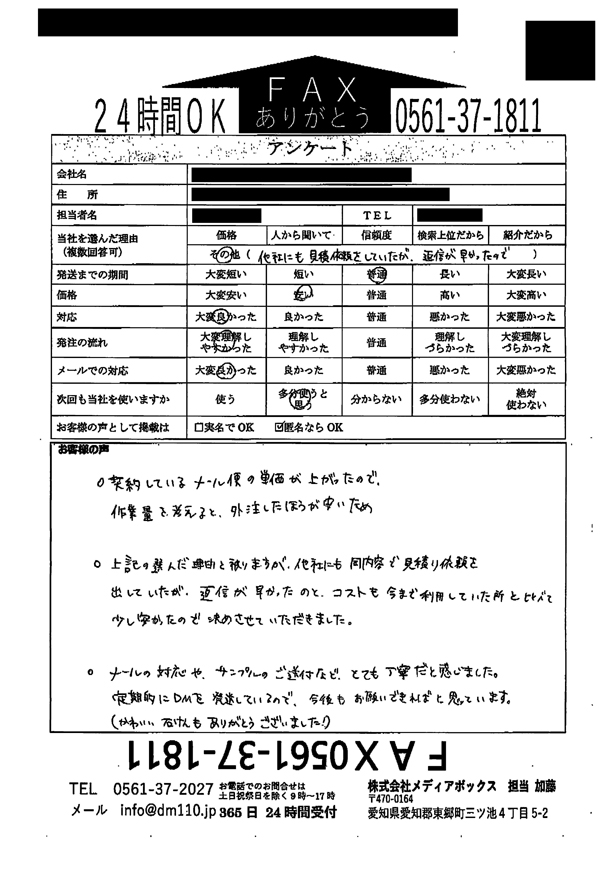 FAX
ありがとう
24時間OK 0561-37-1811
アンケート
会社名
住 所
担当者名 TEL
当社を選んだ理由
(複数回答可)
価格 人から聞いて 信頼度 検索上位だから 紹介だから
その他(他社にも見積依頼をしていたが、返信が早かったので)
発送までの期間 大変短い 短い 普通 長い 大変長い
価格 大変安い 安い 普通 高い 大変高い
対応 大変良かった 良かった 普通 悪かった 大変悪かった
発注の流れ 大変理解しやすかった 理解しやすかった 普通 理解しづらかった 大変理解しづらかった
メールでの対応 大変良かった 良かった 普通 悪かった 大変悪かった
次回も当社を使いますか 使う 多分使うと思う 分からない 多分使わない 絶対使わない
お客様の声として掲載は □実名でOK ☑匿名ならOK
お客様の声
○ 契約しているメール便の単価が上がったので、
作業量を考えると、外注したほうが安いため
○ 上記の選んだ理由と被りますが、他社にも同内容で見積り依頼を
出していたが、返信が早かったのと、コストも今まで利用していた所と比べて
少し安かったので決めさせていただきました。
○ メールの対応や、サンプルのご送付など、とても丁寧だと感じました。
定期的にDMを発送しているので、今後もお願いできればと思っています。
(かわいい石けんもありがとうございました!)
FAX0561-37-1811
TEL 0561-37-2027 お電話でのお問合せは
土日祝祭日を除く9時~17時
メール info@dm110.jp 365日 24時間受付
株式会社メディアボックス 担当 加藤
〒470-0164
愛知県愛知郡東郷町三ツ池4丁目5-2